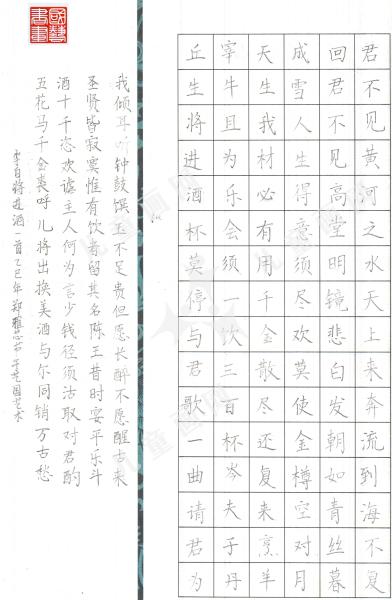 君不见黄河之水天上来奔流到海不复
回君不见高堂明镜悲白发朝如青丝暮
成雪人生得意须尽欢莫使金樽空对月
天生我材必有用千金散尽还复来烹羊
宰牛且为乐会须一饮三百杯岑夫子丹
丘生将进酒杯莫停与君歌一曲请君为
我倾耳听钟鼓馔玉不足贵但愿长醉不愿醒古来
圣贤皆寂寞惟有饮者留其名陈王昔时宴平乐斗
酒十千恣欢谑主人何为言少钱径须沽取对君酌
五花马千金裘呼儿将出换美酒与尔同销万古愁
李白将进酒一首乙巳年郑雅 书于艺园艺术
儿童画网